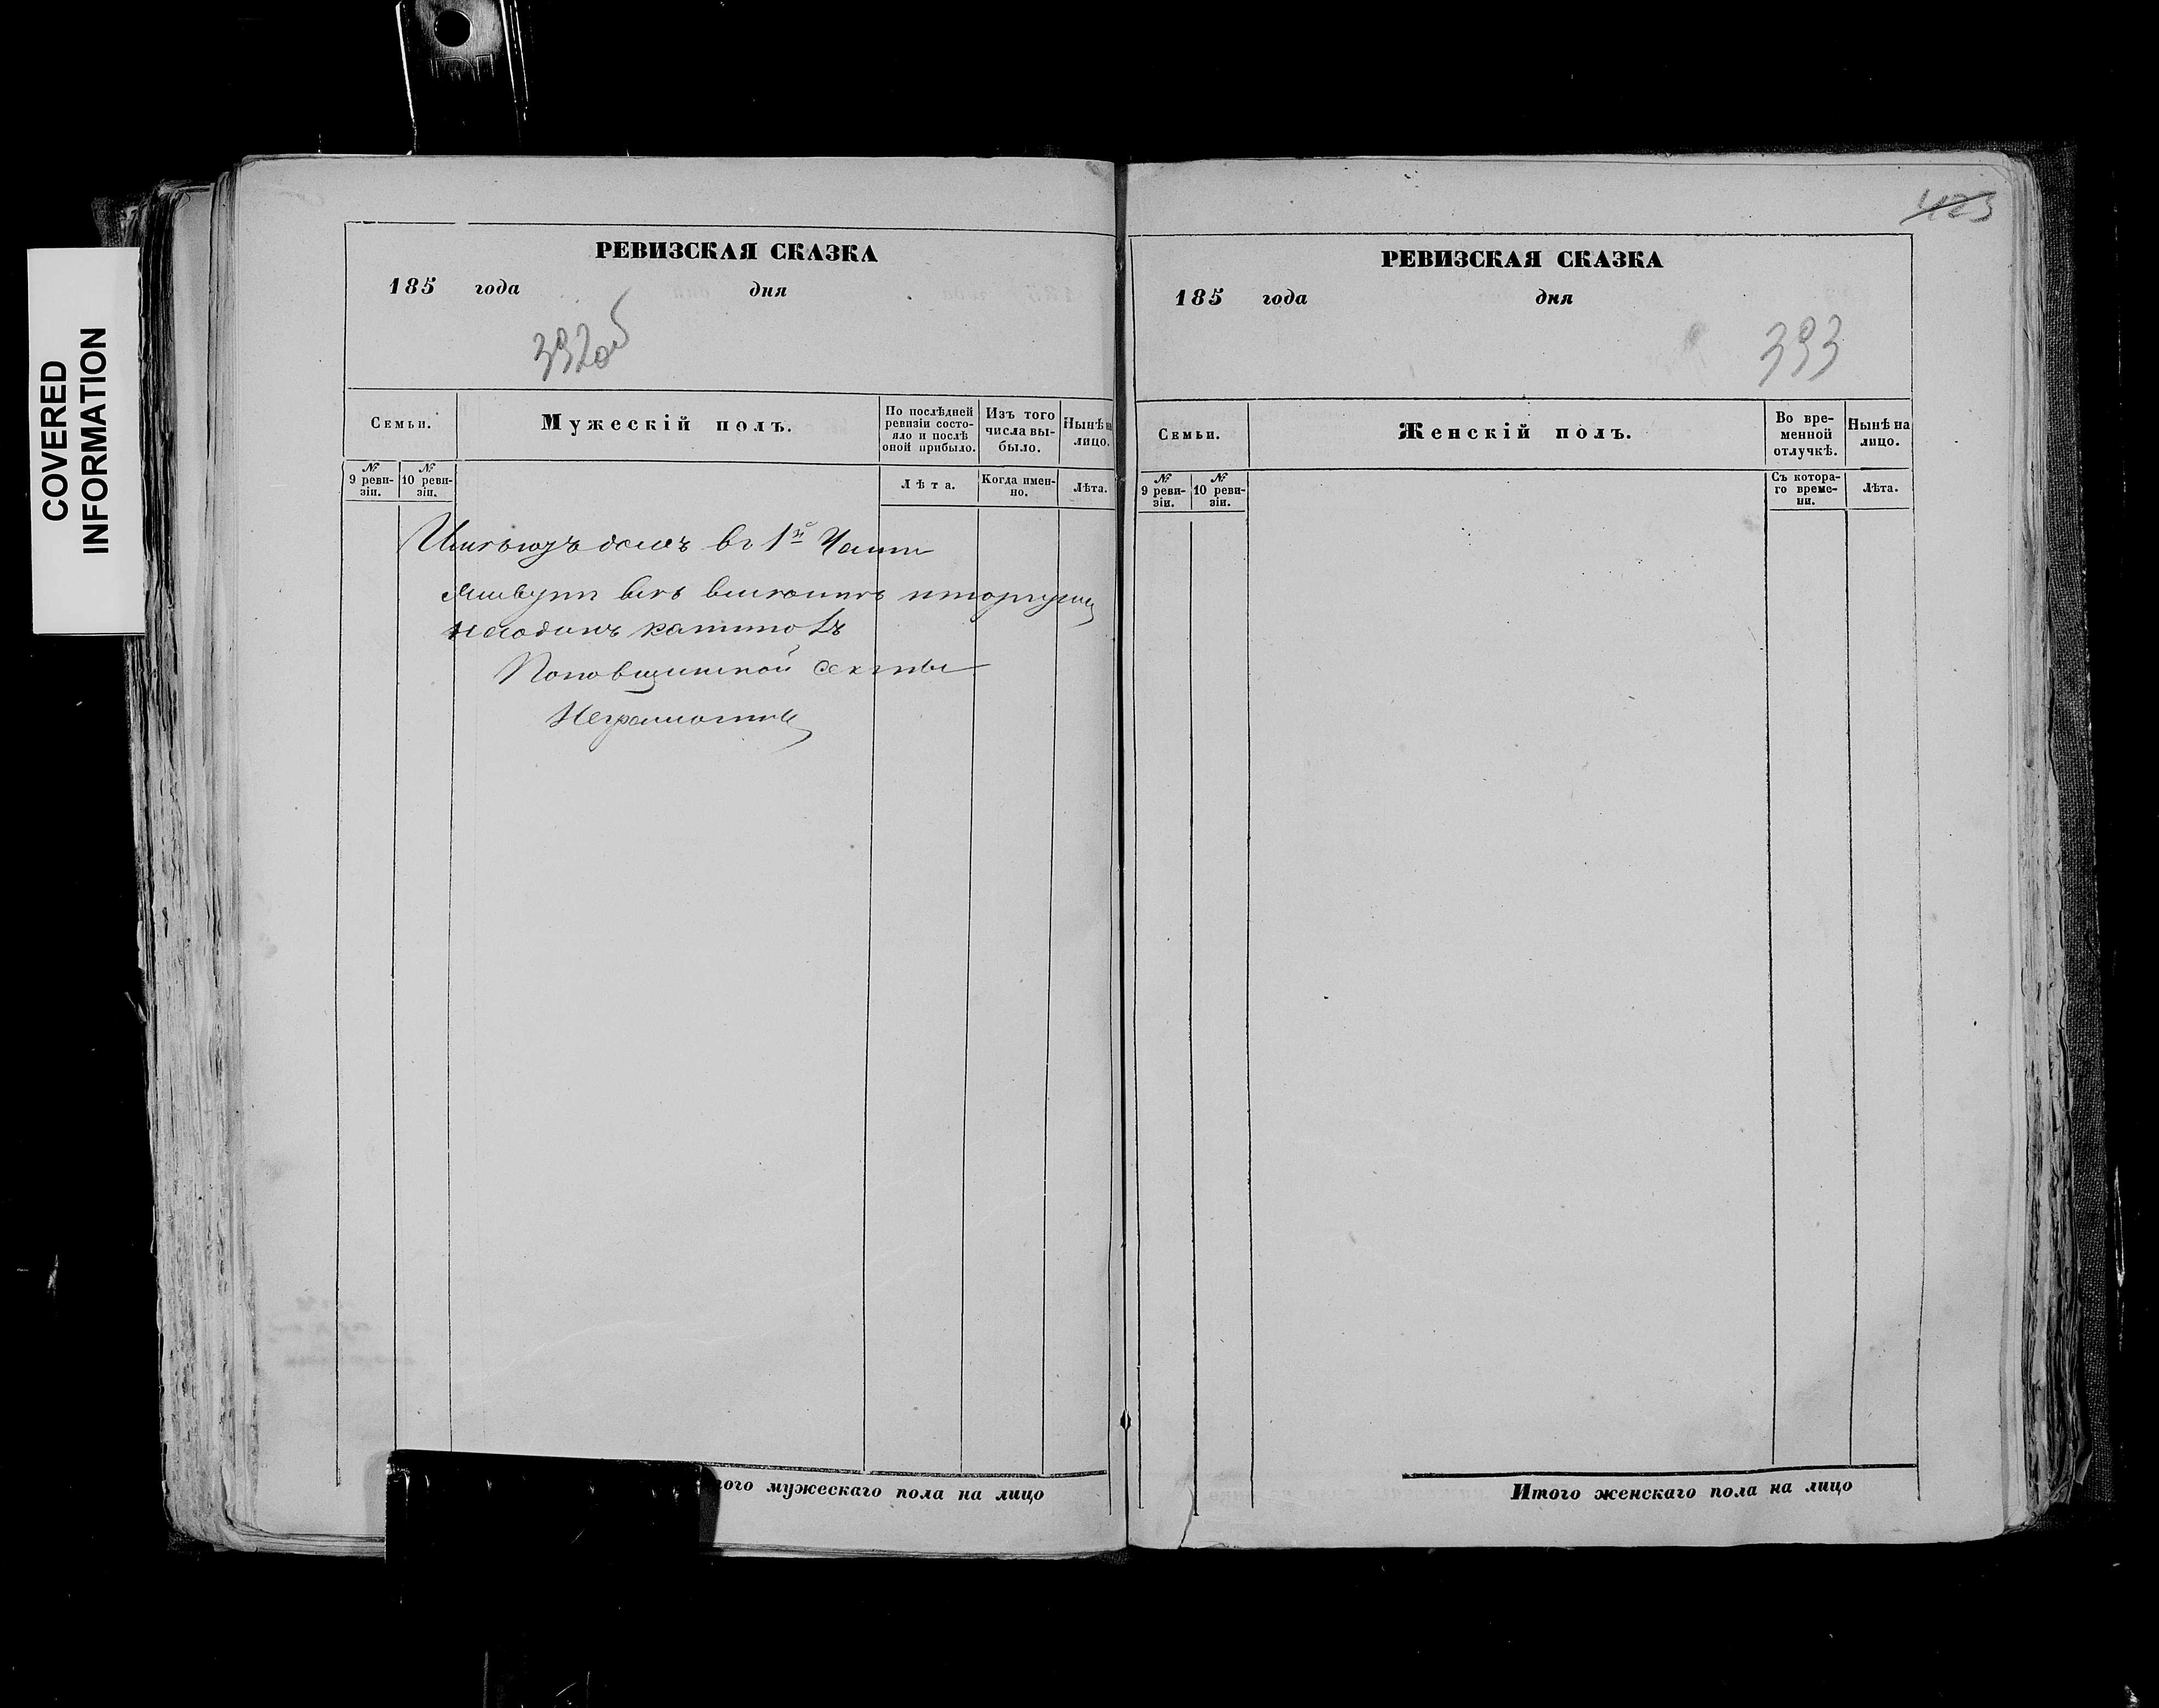 COVERED
INFORMATION
РЕВИЗСКАЯ СКАЗКА
185 года дня
392об
Семьи.
Мужескій полъ.
По послѣдней
ревизіи состо-
яло и послѣ
оной прибыло.
Изъ того
числа вы-
было.
Нынѣ на
лицо.
№
9 реви-
зіи.
№
10 реви-
зіи.
Лѣта.
Когда имен-
но.
Лѣта.
Имѣютъ домъ въ 1й Части
Живутъ всѣ вмѣстѣ
капиталъ
Поповщинской секты
Неграмотны
того мужескаго пола на лицо
423
РЕВИЗСКАЯ СКАЗКА
185 года дня
393
Семьи.
Женскій полъ.
Во вре-
менной
отлучкѣ.
Нынѣ на
лицо.
№
9 реви-
зіи.
№
10 реви-
зіи.
Съ котора-
го време-
ни.
Лѣта.
Итого женскаго пола на лицо